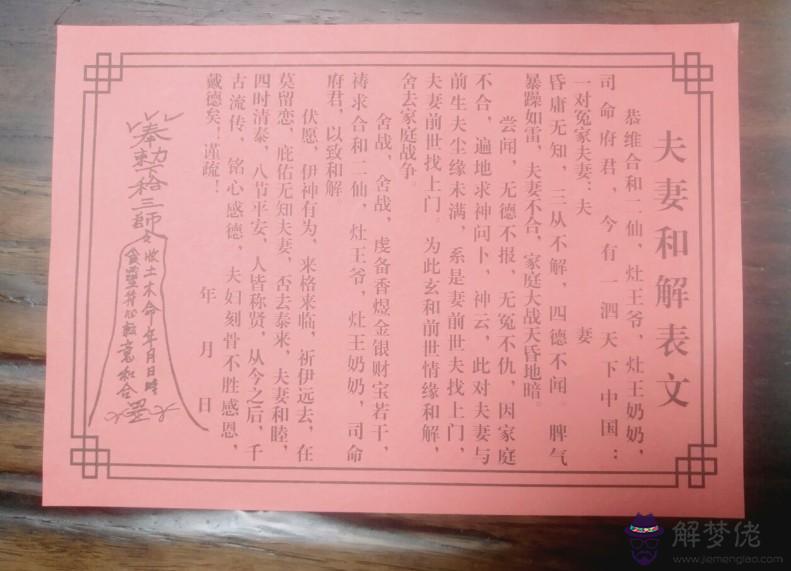 夫妻和解表文
恭维合和二仙，灶王爷，灶王奶奶，
司命府君，今有一泗天下中国：
一对冤家夫妻：夫　　　妻
昏庸无知，三从不解，四德不闻。脾气
暴躁如雷，夫妻不合，家庭大战天昏地暗。
尝闻，无德不报，无冤不仇，因家庭
不合，遍地求神问卜，神云，此对夫妻与
前生夫尘缘未满，系是妻前世夫找上门，
夫妻前世找上门。为此玄和前世情缘和解，
舍去家庭战争。
舍战，舍战，虔备香煜金银财宝若干，
祷求合和二仙，灶王爷，灶王奶奶，司命
府君，以致和解。
伏愿，伊神有为，来格来临，祈伊远去，在
莫留恋，庇佑无知夫妻，否去泰来，夫妻和睦，
四时清泰，八节平安，人皆称贤，从今之后，千
古流传，铭心感德，夫妇刻骨不胜感恩，
戴德矣！谨疏！
年　月　日
奉勅
三師
收土木命　年月日時
和合
解梦佬
www.jiemenglao.com